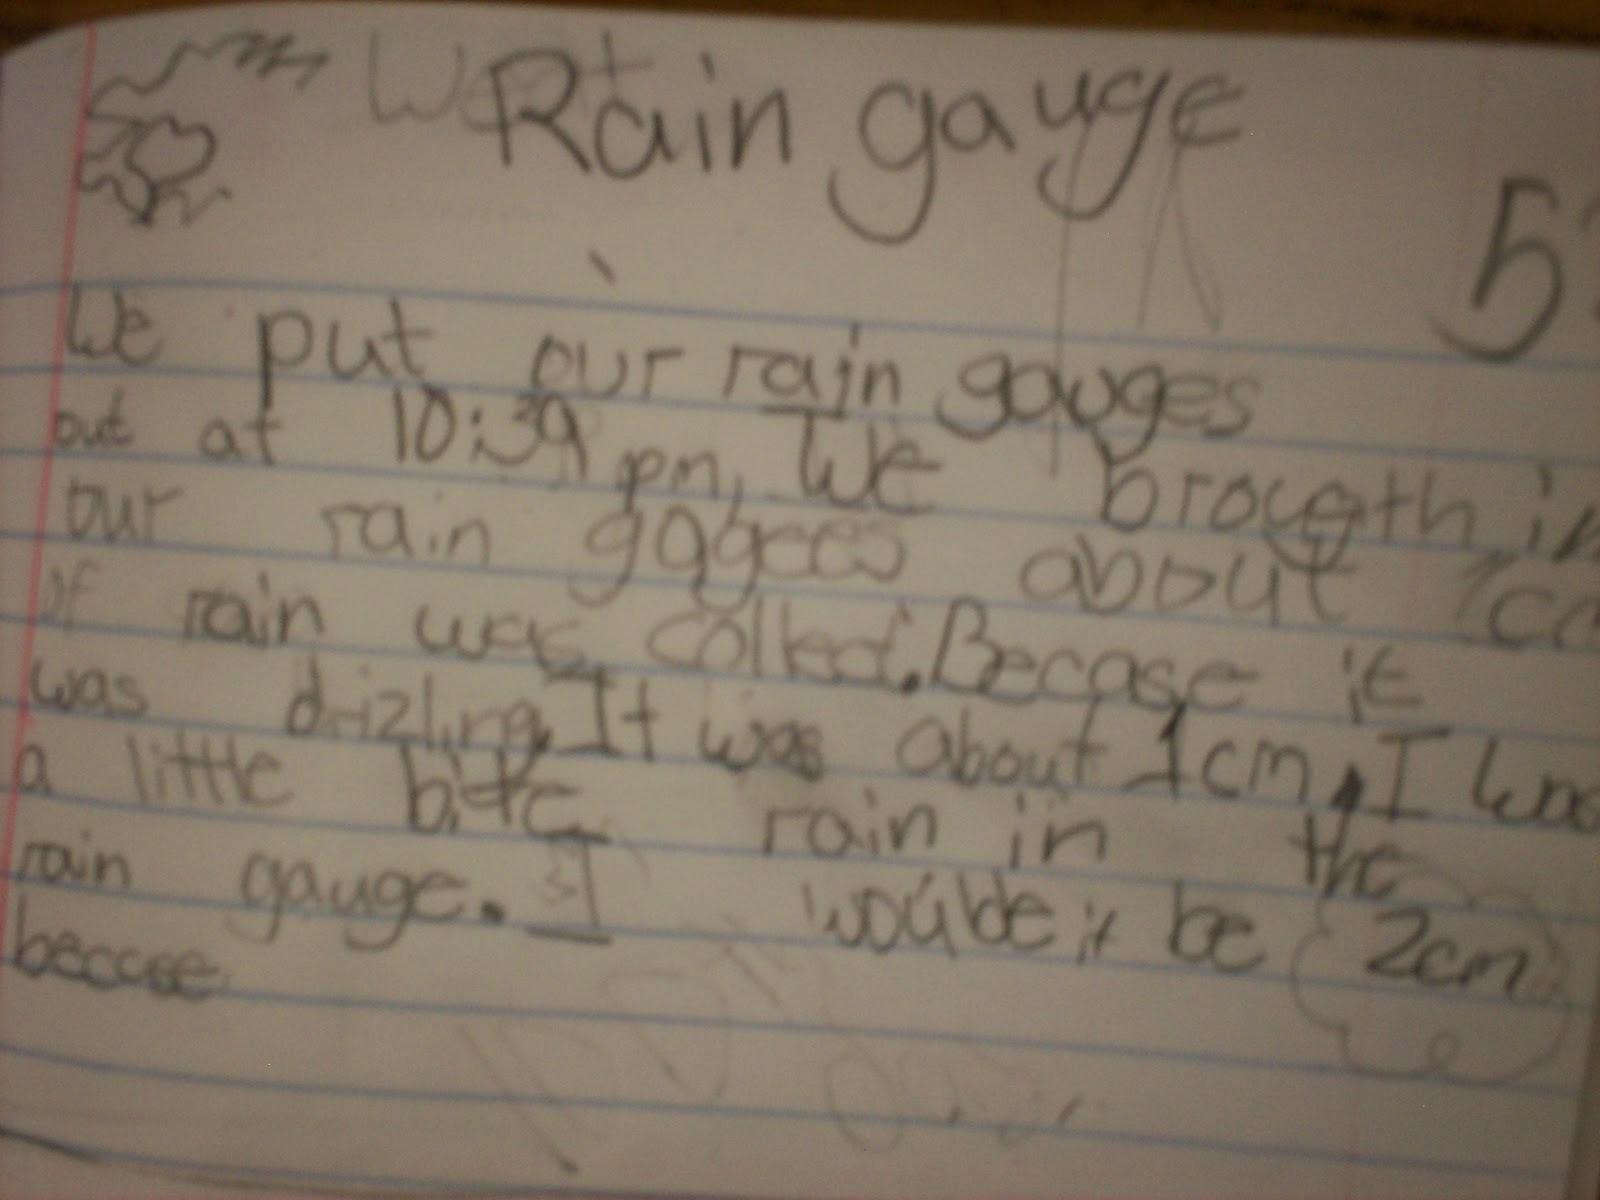 Rain gauge
5
We put our rain gauges
out at 10:39 pm, We brougth in
our rain gagees about
of rain was collect. Becase it
was drizling. It was about 1cm. I was
a little bite rain in the
rain gauge. I woulde it be 2cm
becase